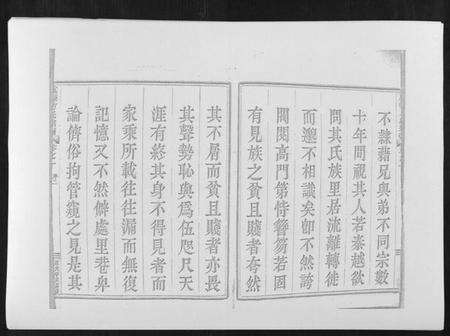 不隸譜兄與弟不同宗數
十年間視其人若秦越欲
問其氏族里居流離轉徙
而邈不相識矣即不然誇
閥閱高門第恃簪笏若固
有見族之貧且賤者夸然
其不屑而貧且賤者亦畏
其聲勢恥與為伍咫尺天
涯有終其身不得見者而
家乘所載往往漏而無復
記憶又不然僻處里巷卑
論儕俗拘管窺之見是其